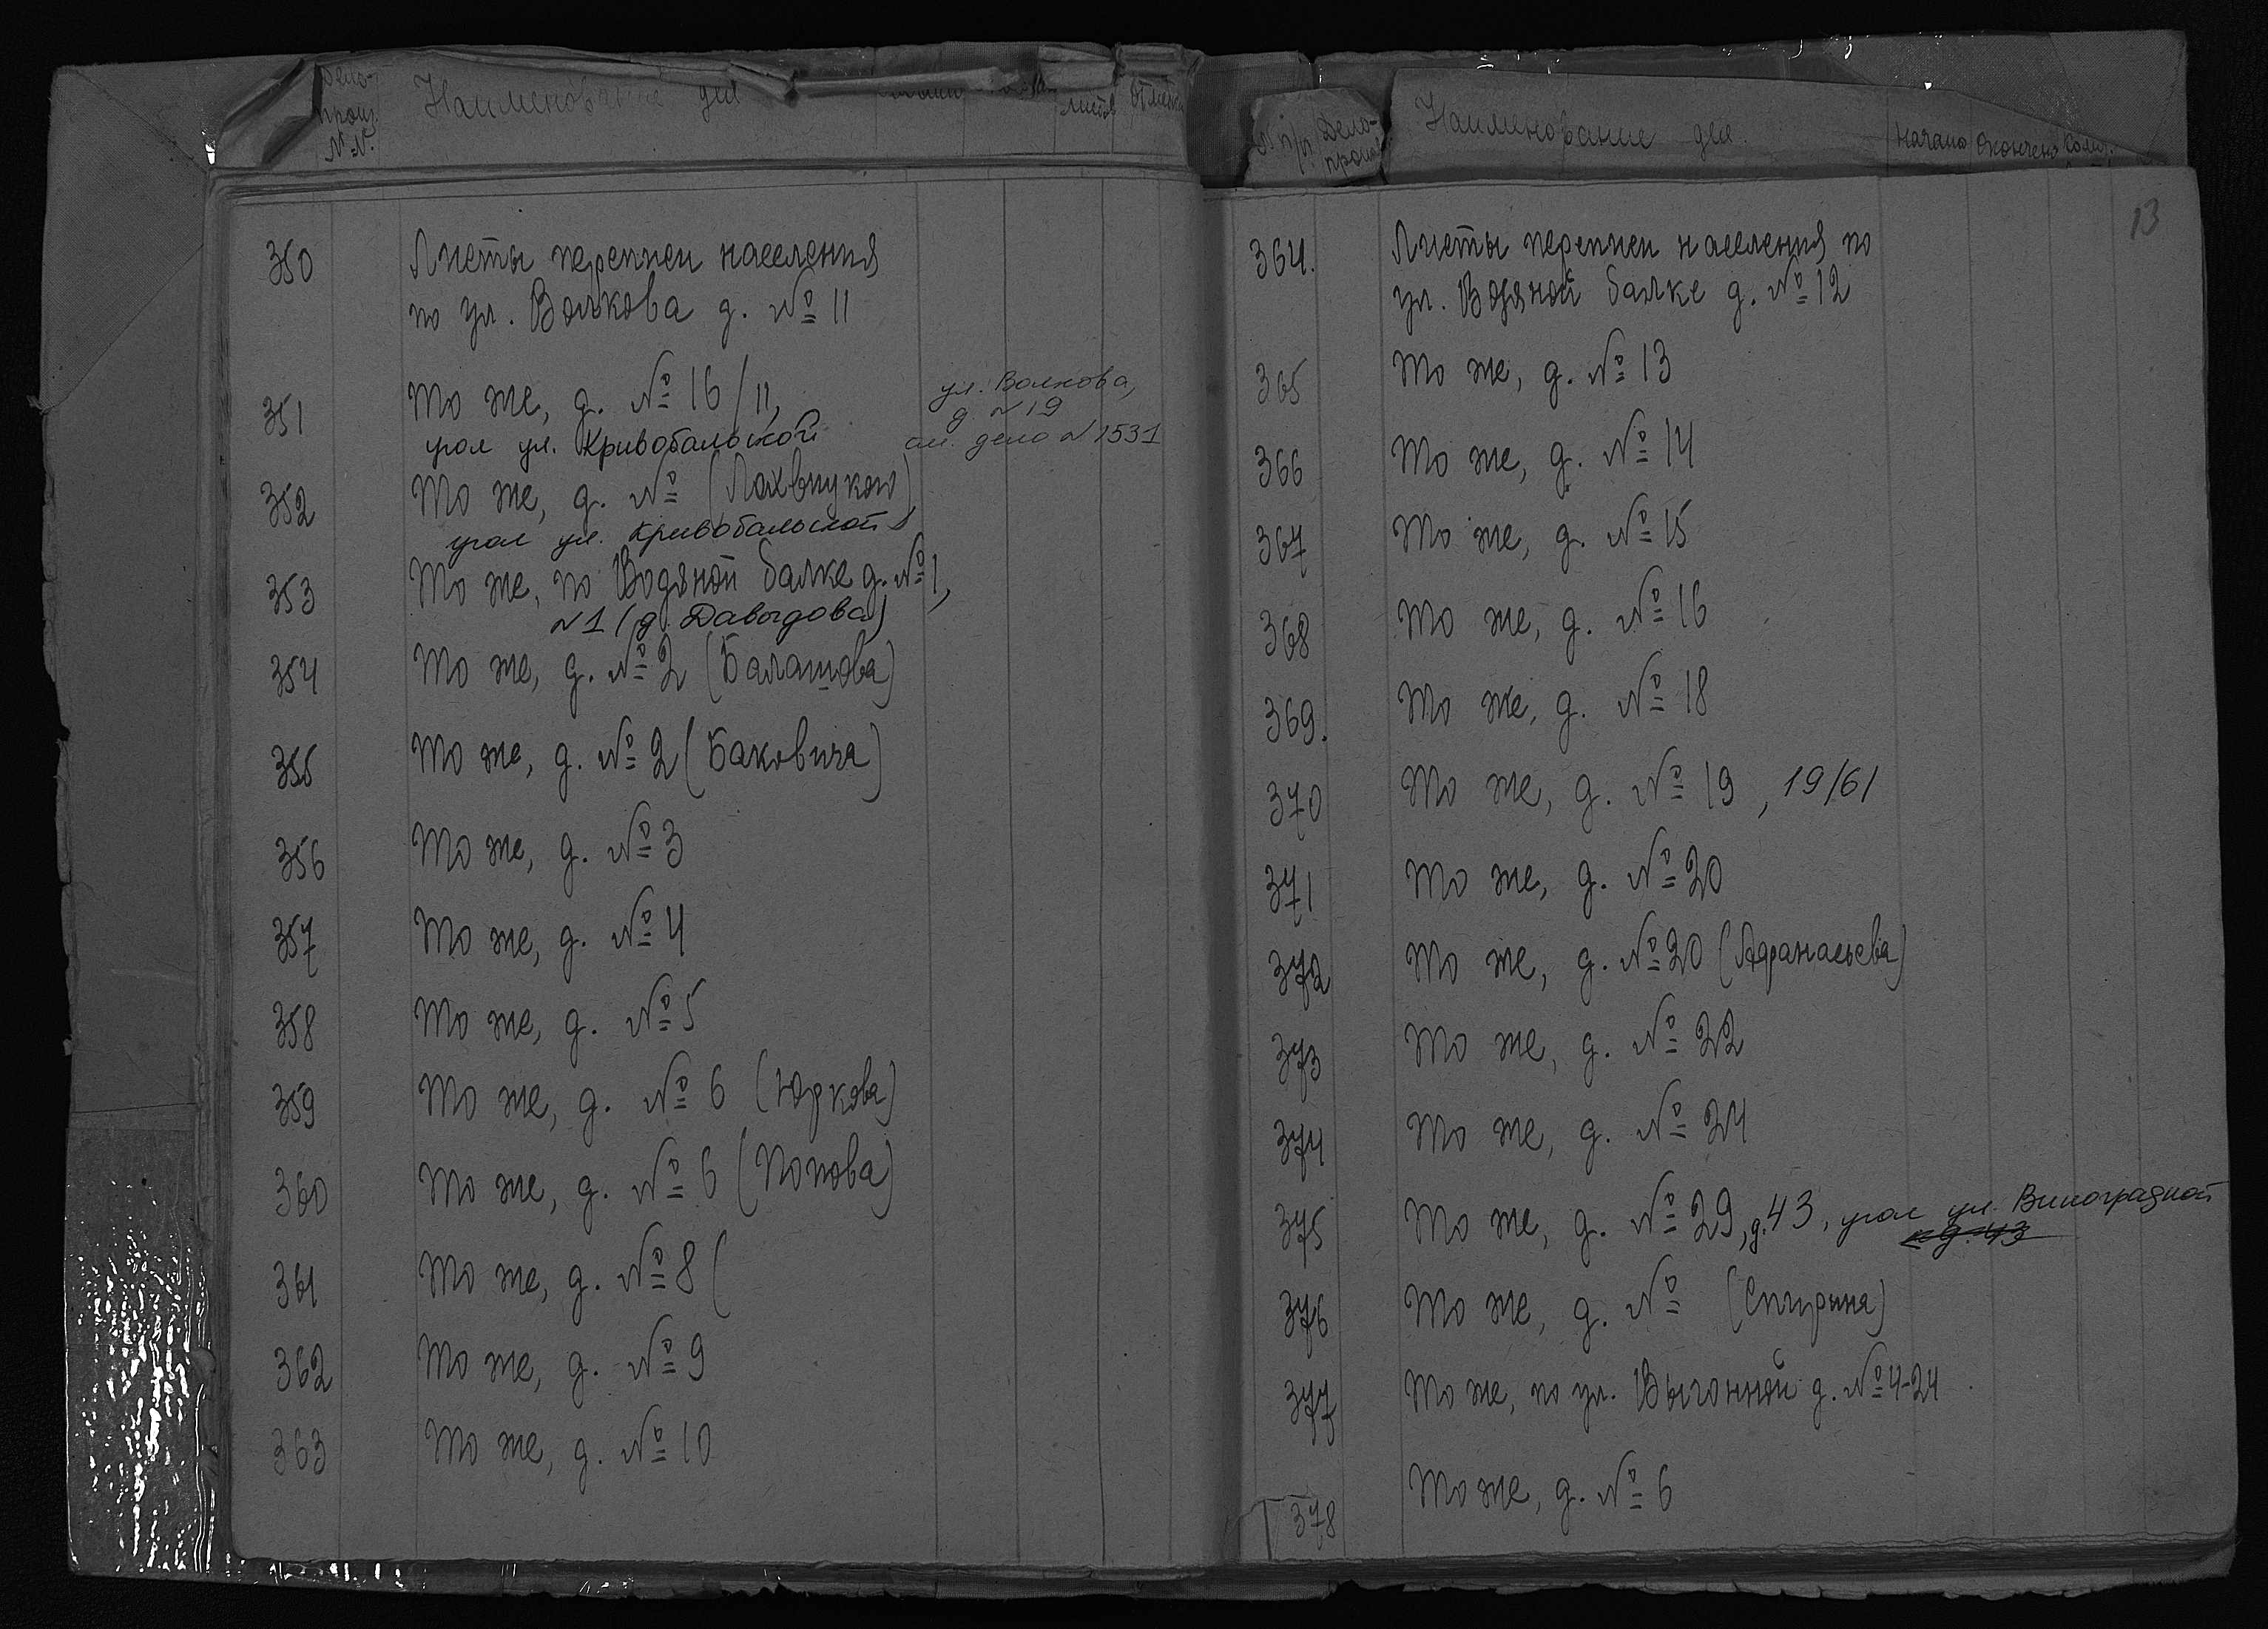 Дело-
произ.
N-N.
Наименование дел
листов
№ п/п
Дело-
произ
Наименование дел.
Начато
Окончено
Колич.
350 Листы переписи населения
по ул. Волкова д. № 11
351 То же, д. № 16/11,
угол ул. Кривобальской
ул. Волкова,
д. N 19
см. дело N 1531
352 То же, д. № (
угол ул. Кривобальской
353 То же, по Водяной балке д. № 1,
N 1 (д. Давыдова)
354 То же, д. № 2 (Балашова)
355 То же, д. № 2 (Баковича)
356 То же, д. № 3
357 То же, д. № 4
358 То же, д. № 5
359 То же, д. № 6 (Юркова)
360 То же, д. № 6 (Попова)
361 То же, д. № 8 (
362 То же, д. № 9
363 То же, д. № 10
13
364. Листы переписи населения по
ул. Водяной балке д. № 12
365 То же, д. № 13
366 То же, д. № 14
367 То же, д. № 15
368 То же, д. № 16
369. То же, д. № 18
370 То же, д. № 19, 19/61
371 То же, д. № 20
372 То же, д. № 20 (Афанасьева)
373 То же, д. № 22
374 То же, д. № 24
375 То же, д. № 29, д. 43, угол ул. Виноградной
д. 43
376 То же, д. № (Спирина)
377 То же, по ул. Выгонной д. № 4-24
378 То же, д. № 6